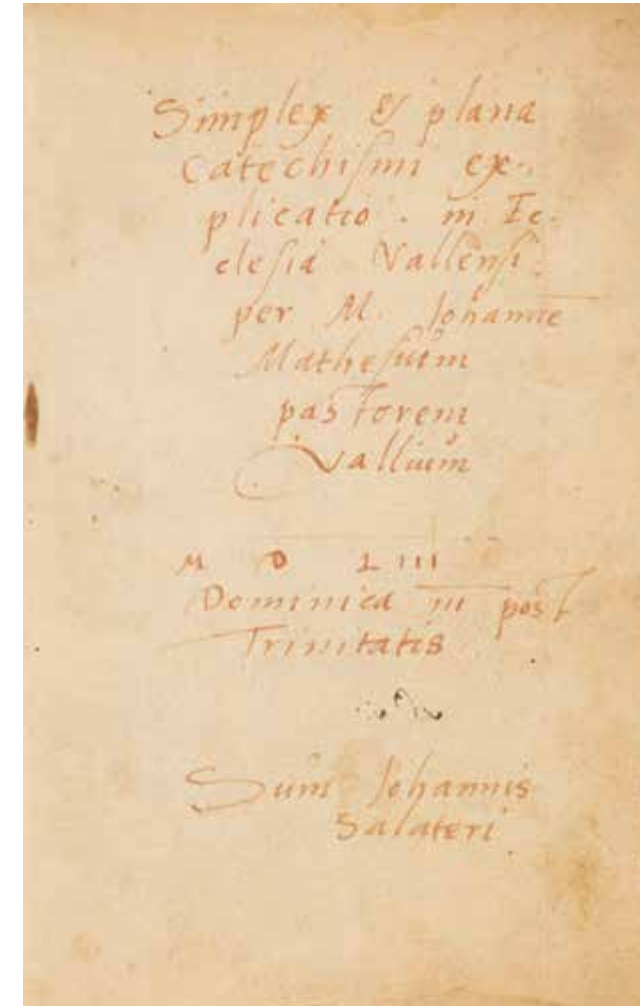 Simplex & plana
Catechismi ex-
plicatio. in Ec-
clesia Vallensi.
per M. Johannē
Mathesium
pastorem
Vallium
M D LIII
Dominica III post
Trinitatis
Sum Johannis
Salateri